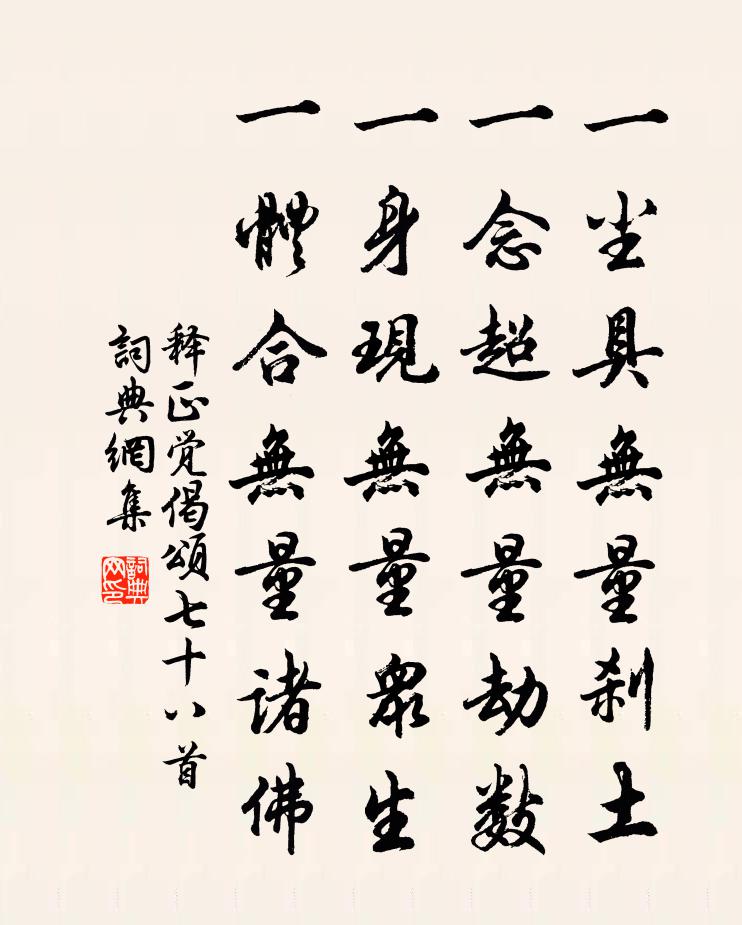 一尘具無量刹土
一念超無量劫数
一身現無量眾生
一體合無量諸佛
释正觉偈頌七十八首
詞典網集
詞典网印